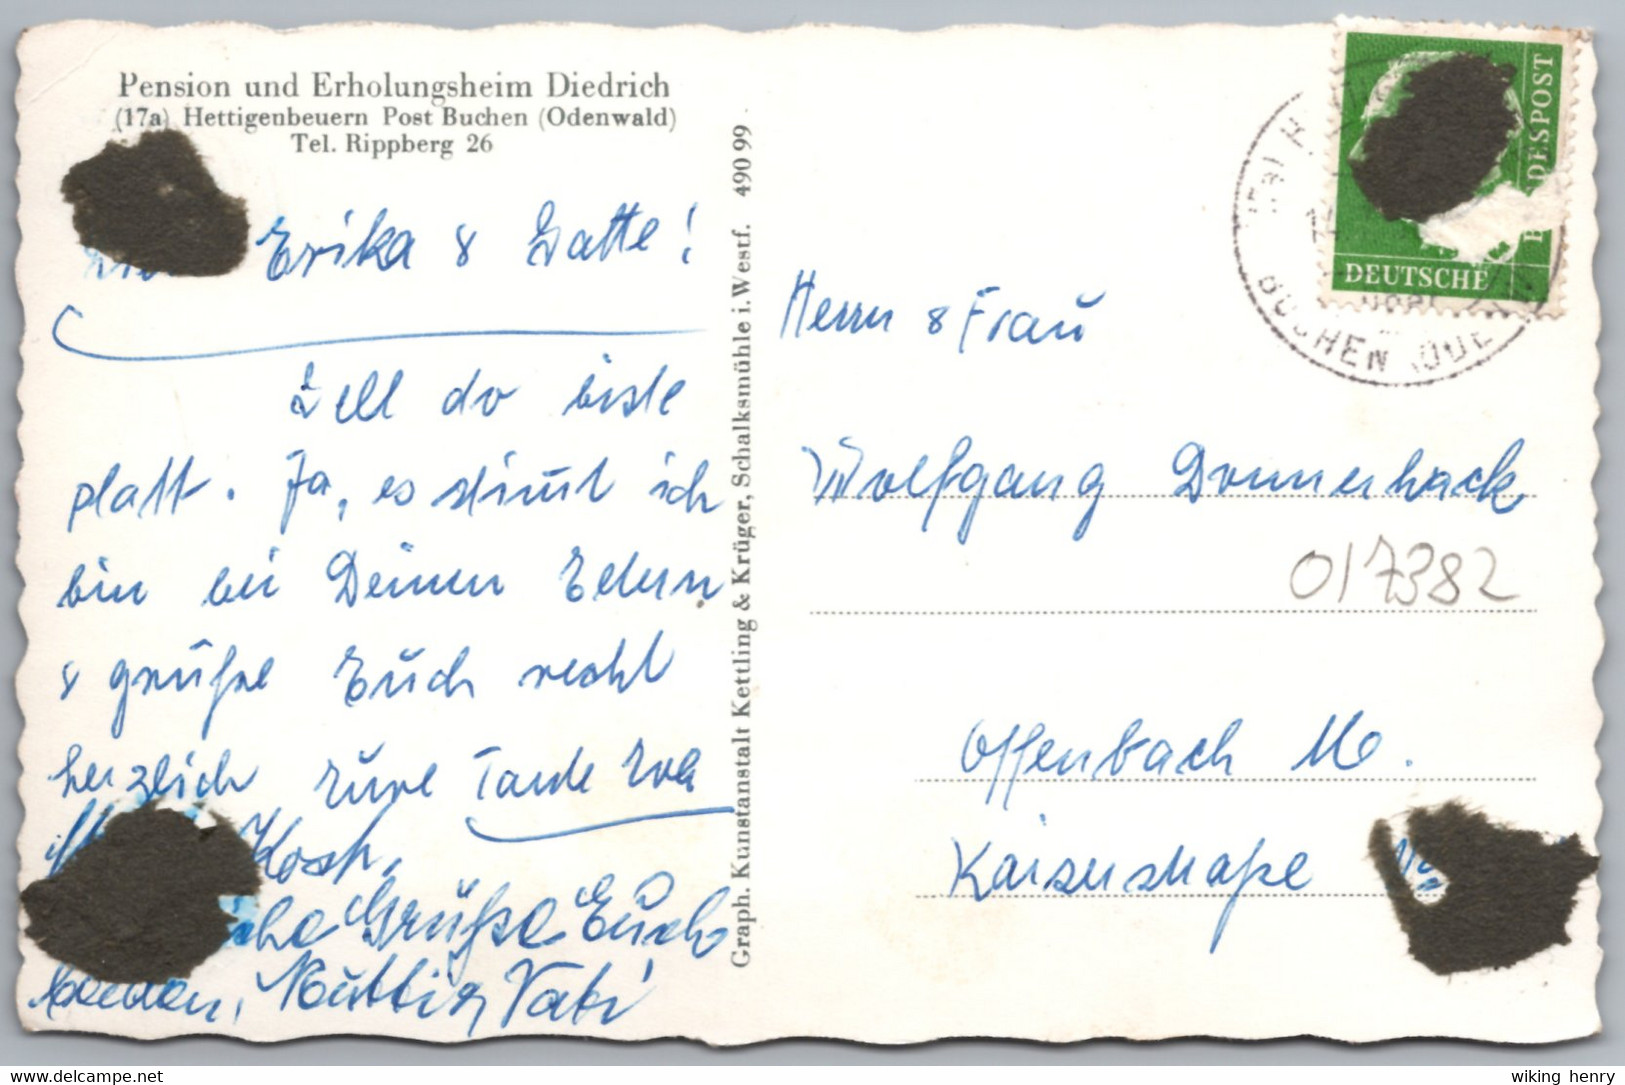 Pension und Erholungsheim Diedrich
(17a) Hettigenbeuern Post Buchen (Odenwald)
Tel. Rippberg 26
Erika & Gatte!
Gell da biste
platt. Ja, es stimmt ich
bin bei Deinen Eltern
& grüße Euch recht
herzlich Eure Tante Eva
Grüße Euch
beiden, Mutti & Vati
Graph. Kunstanstalt Kettling & Krüger, Schalksmühle i. Westf. 490 99
DEUTSCHE
BUCHEN
Herrn & Frau
Wolfgang Donnerhack
017382
Offenbach M.
Kaiserstraße
delcampe.net
wiking henry